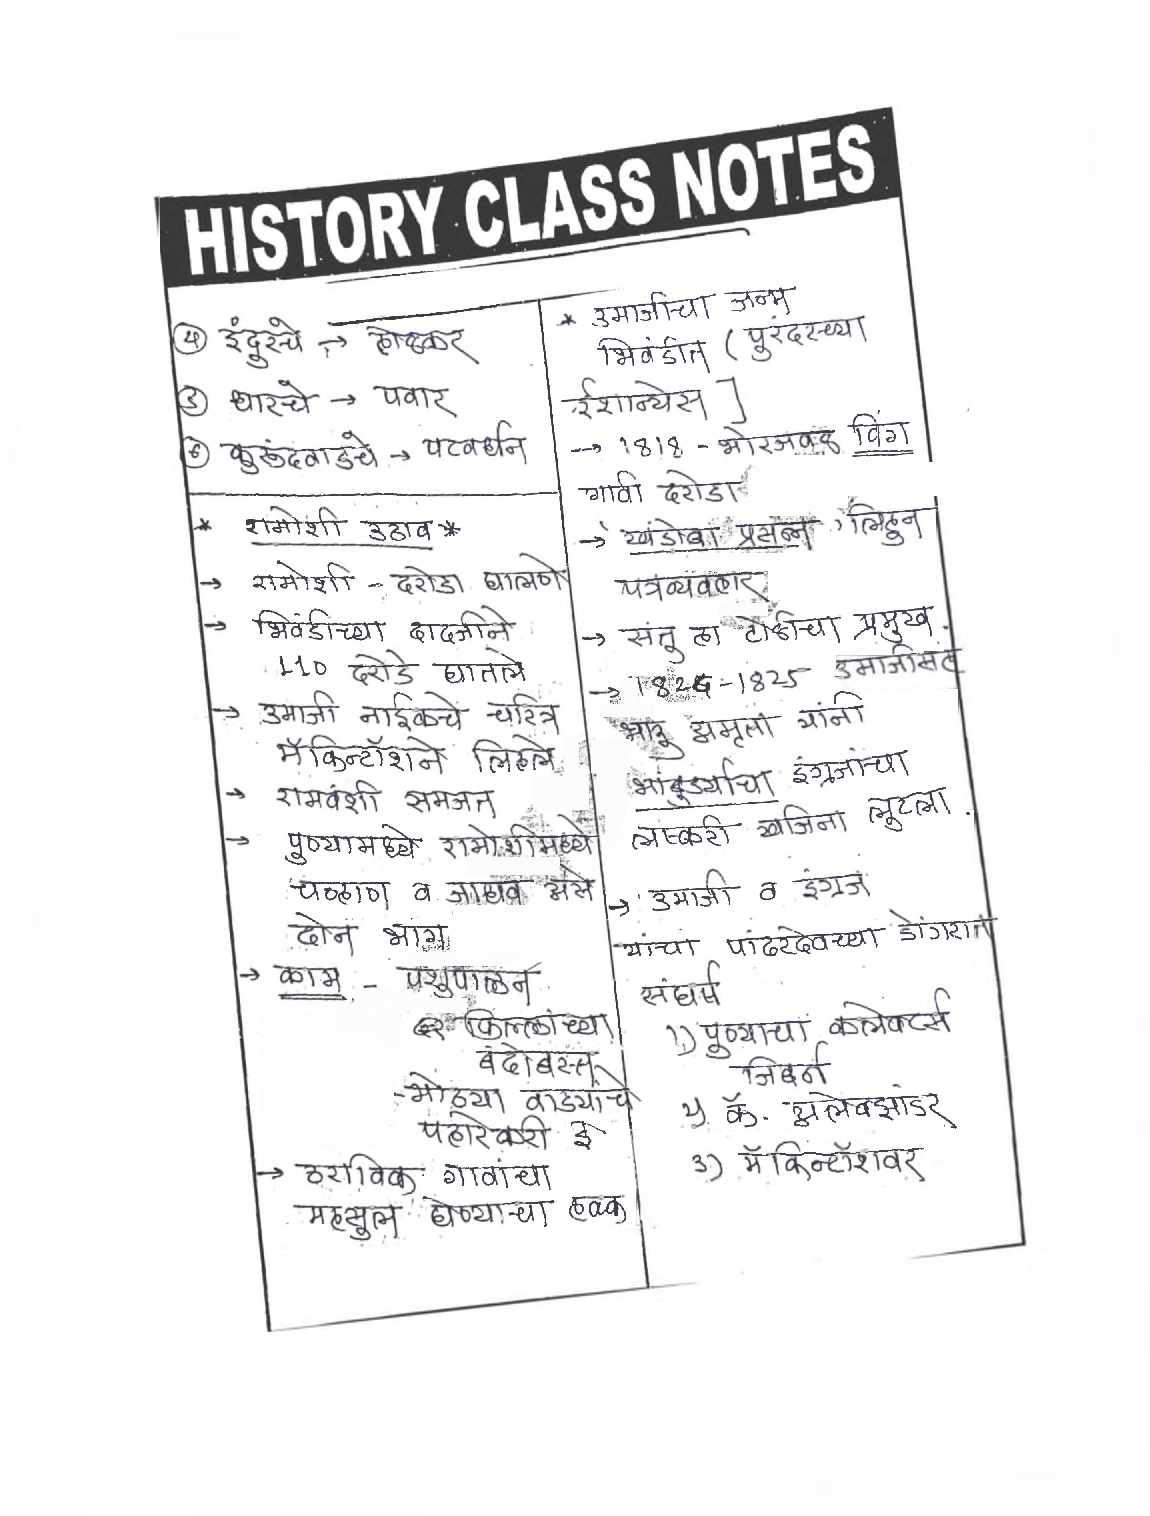 HISTORY CLASS NOTES
४ इंदुरचे → होळकर
५ धारचे → पवार
६ कुरुंदवाडचे → पटवर्धन
* रामोशी उठाव *
→ रामोशी - दरोडा घालणे
→ भिवंडीच्या दादजीने
110 दरोडे घातले
→ उमाजी नाईकचे चरित्र
मॅकिन्टॉशने लिहले
→ रामवंशी समजत
→ पुण्यामध्ये रामोशीमध्ये
चव्हाण व जाधव असे
दोन भाग
→ काम - पशुपालन
किल्लांच्या
बंदोबस्त
- मोठ्या वाड्याचे
पहारेकरी इ
→ ठराविक गावांचा
महसुल घेण्याचा हक्क
* उमाजीचा जन्म
भिवंडीत (पुरंदरच्या
ईशान्येस ]
→ 1818 - भोरजवळ विंग
गावी दरोडा
→ 'खंडोबा प्रसन्न' लिहून
पत्रव्यवहार
→ संतु हा टोळीचा प्रमुख.
→ 1824-1825 उमाजीसह
भाऊ अमृता यांनी
भांबुर्ड्याचा इंग्रजांचा
लष्करी खजिना लूटला.
→ उमाजी व इंग्रज
यांचा पांढरदेवच्या डोंगरात
संघर्ष
1) पुण्याचा कलेक्टर्स
जिबर्न
2) कॅ. अलेक्झांडर
3) मॅकिन्टॉशवर